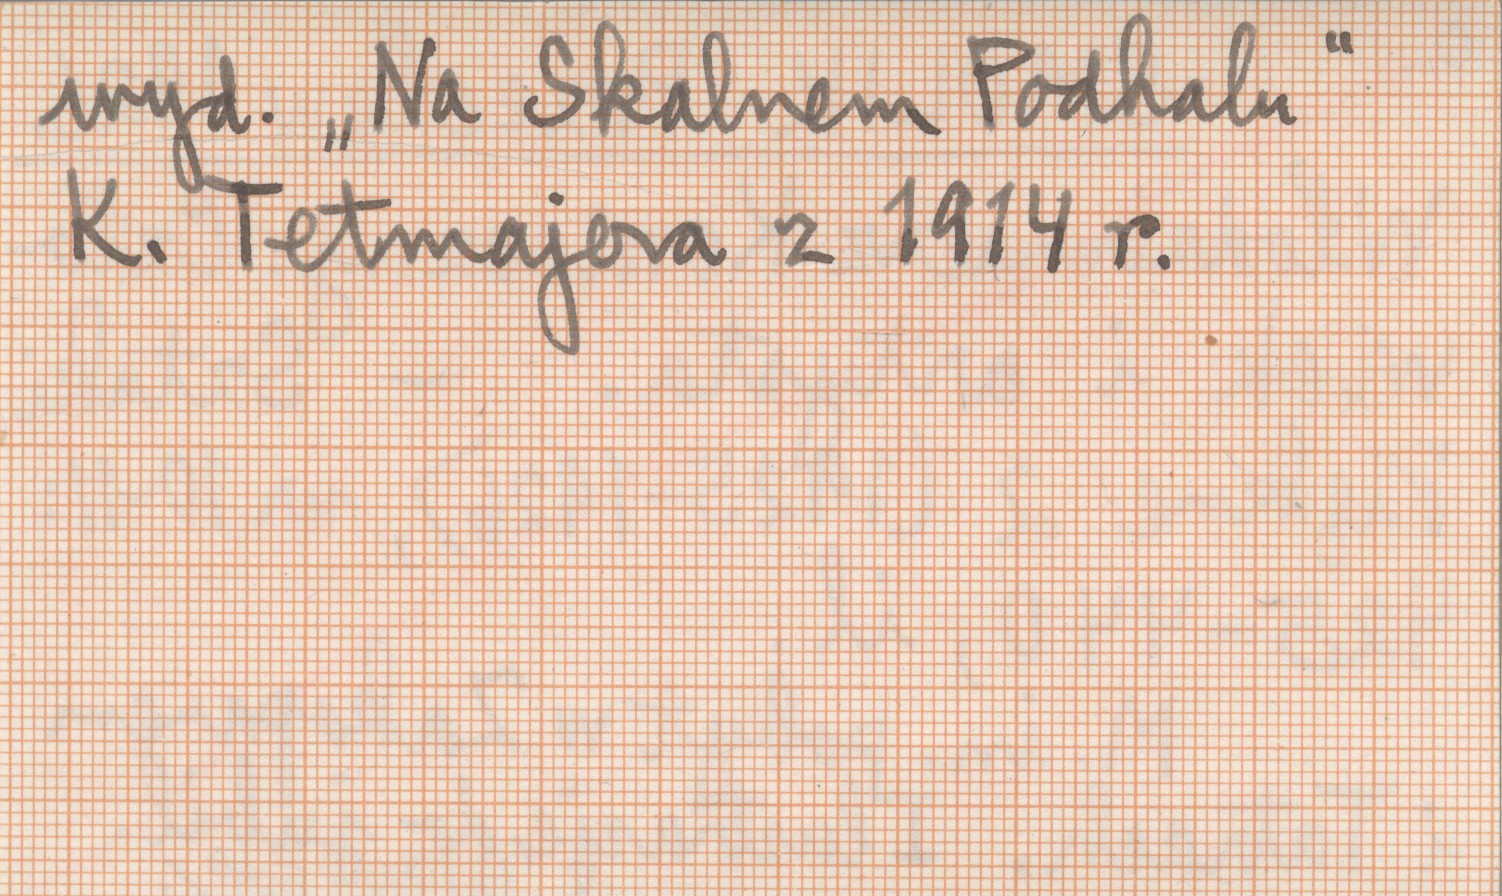 wyd. „Na Skalnem Podhalu“
K. Tetmajera z 1914 r.